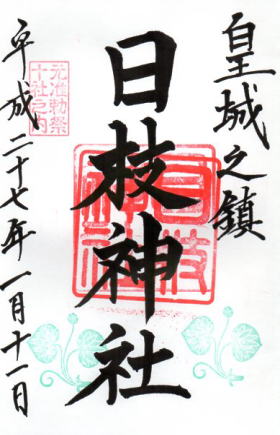 皇城之鎮
日枝神社
日枝神社
元准勅祭
十社之内
平成二十七年一月十一日